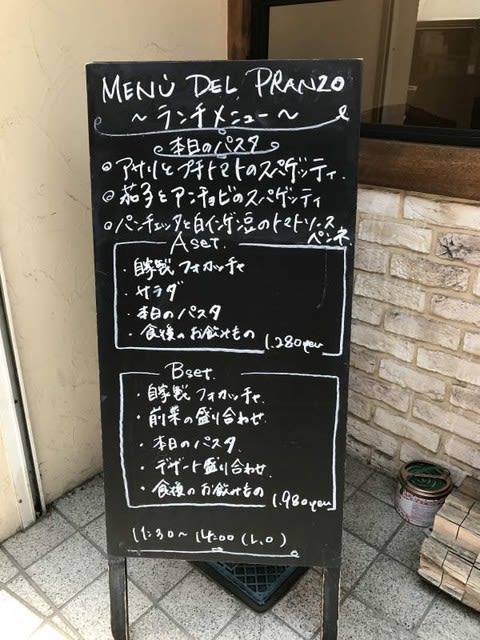 MENÙ DEL PRANZO
～ランチメニュー～
本日のパスタ
◎アサリとプチトマトのスペゲッティ.
◎茄子とアンチョビのスペゲッティ
◎パンチェッタと白インゲン豆のトマトソース
ペンネ
Aset.
・自家製フォカッチャ
・サラダ
・本日のパスタ
・食後のお飲みもの
1.280yen
Bset.
・自家製フォカッチャ
・前菜の盛り合わせ.
・本日のパスタ.
・デザート盛り合わせ.
・食後のお飲みもの
1.980yen
11:30～14:00(L.O)